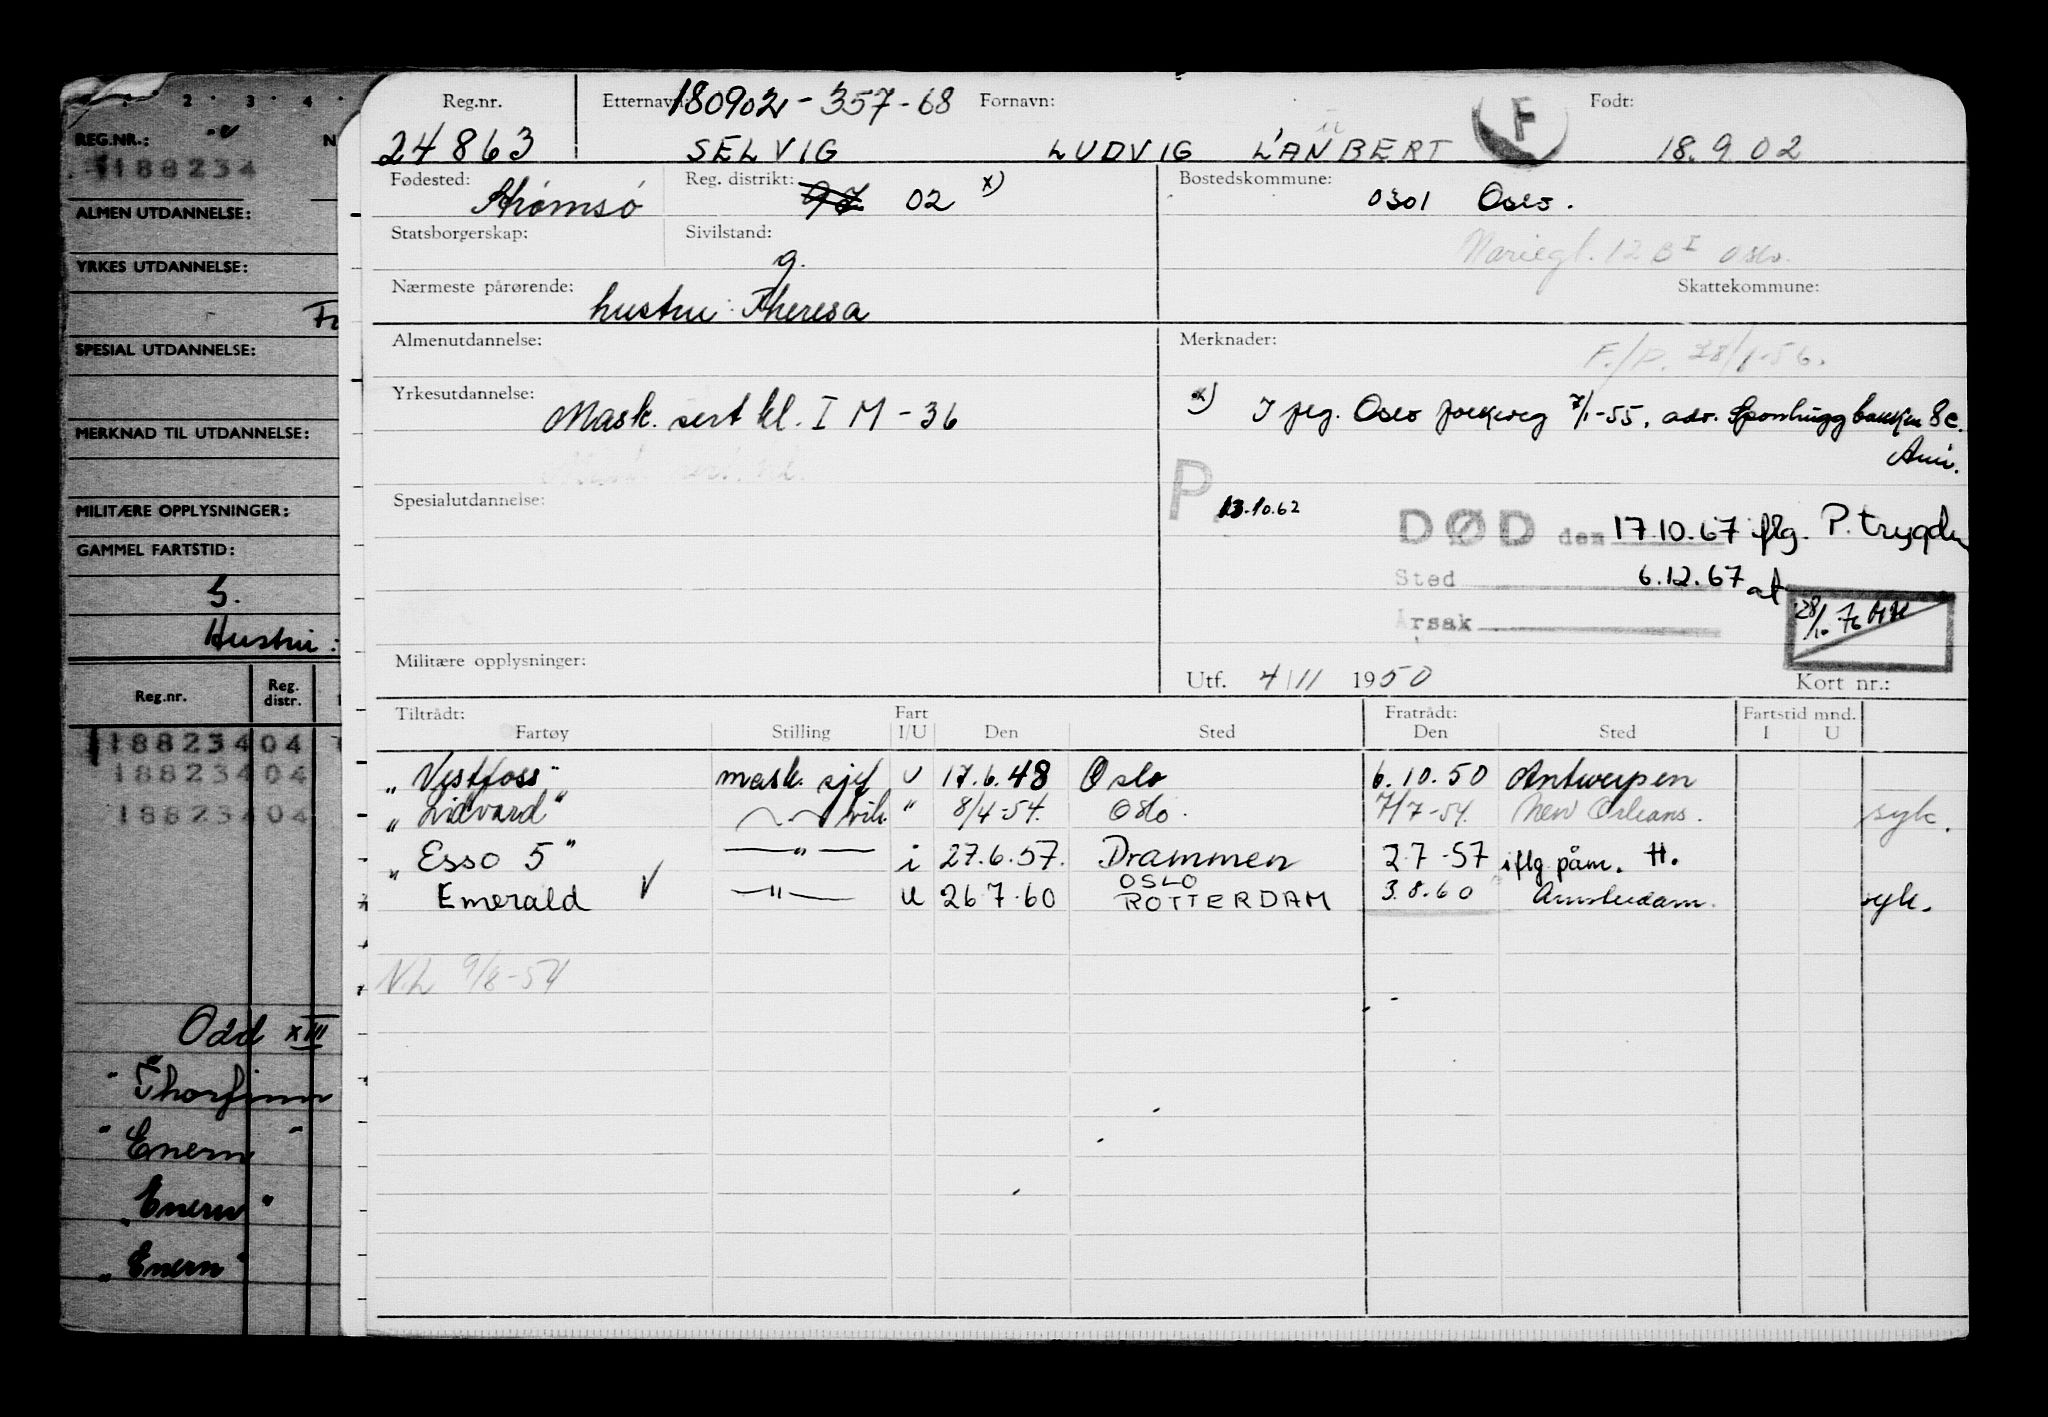 1 2 3 4
REG.NR.:
188234
ALMEN UTDANNELSE:
YRKES UTDANNELSE:
SPESIAL UTDANNELSE:
MERKNAD TIL UTDANNELSE:
MILITÆRE OPPLYSNINGER:
GAMMEL FARTSTID:
Hustru:
Reg.nr. Reg. distr.
188234 04
188234 04
188234 04
Odd XIII
"Thorfinn
"Enern"
"Enern"
"Enern"
Reg.nr. Etternavn: 180902-357-68 Fornavn: F Født:
24863 SELVIG LUDVIG LANBERT 18.9.02
Fødested: Strømsø Reg. distrikt: 02 x) Bostedskommune: 0301 Oslo.
Statsborgerskap: Sivilstand: g.
12 B I Oslo.
Nærmeste pårørende: hustru: Theresa Skattekommune:
Almenutdannelse: Merknader:
F./P. 28/1-56.
Yrkesutdannelse: Mask. sert kl. I M-36
x) I flg. Oslo 7/1-55, adr. 8c.
P. 13.10.62
Spesialutdannelse:
DØD den 17.10.67 iflg. P. trygden
Sted 6.12.67 at
28/10 76
Årsak
Militære opplysninger:
Utf. 4/11 1950 Kort nr.:
Tiltrådt: Fartøy Stilling Fart I/U Den Sted Fratrådt: Den Sted Fartstid mnd. I U
"Vestfoss" mask. sjef u 17.6.48 Oslo 6.10.50 Antwerpen
"Lidvard" " 8/4-54. Oslo. 7/7-54. New Orleans. syk.
"Esso 5" —"— i 27.6.57. Drammen 2.7-57 iflg påm. H.
OSLO
Emerald V —"— u 26.7.60 ROTTERDAM 3.8.60 Amsterdam. syk.
N.L 9/8-54